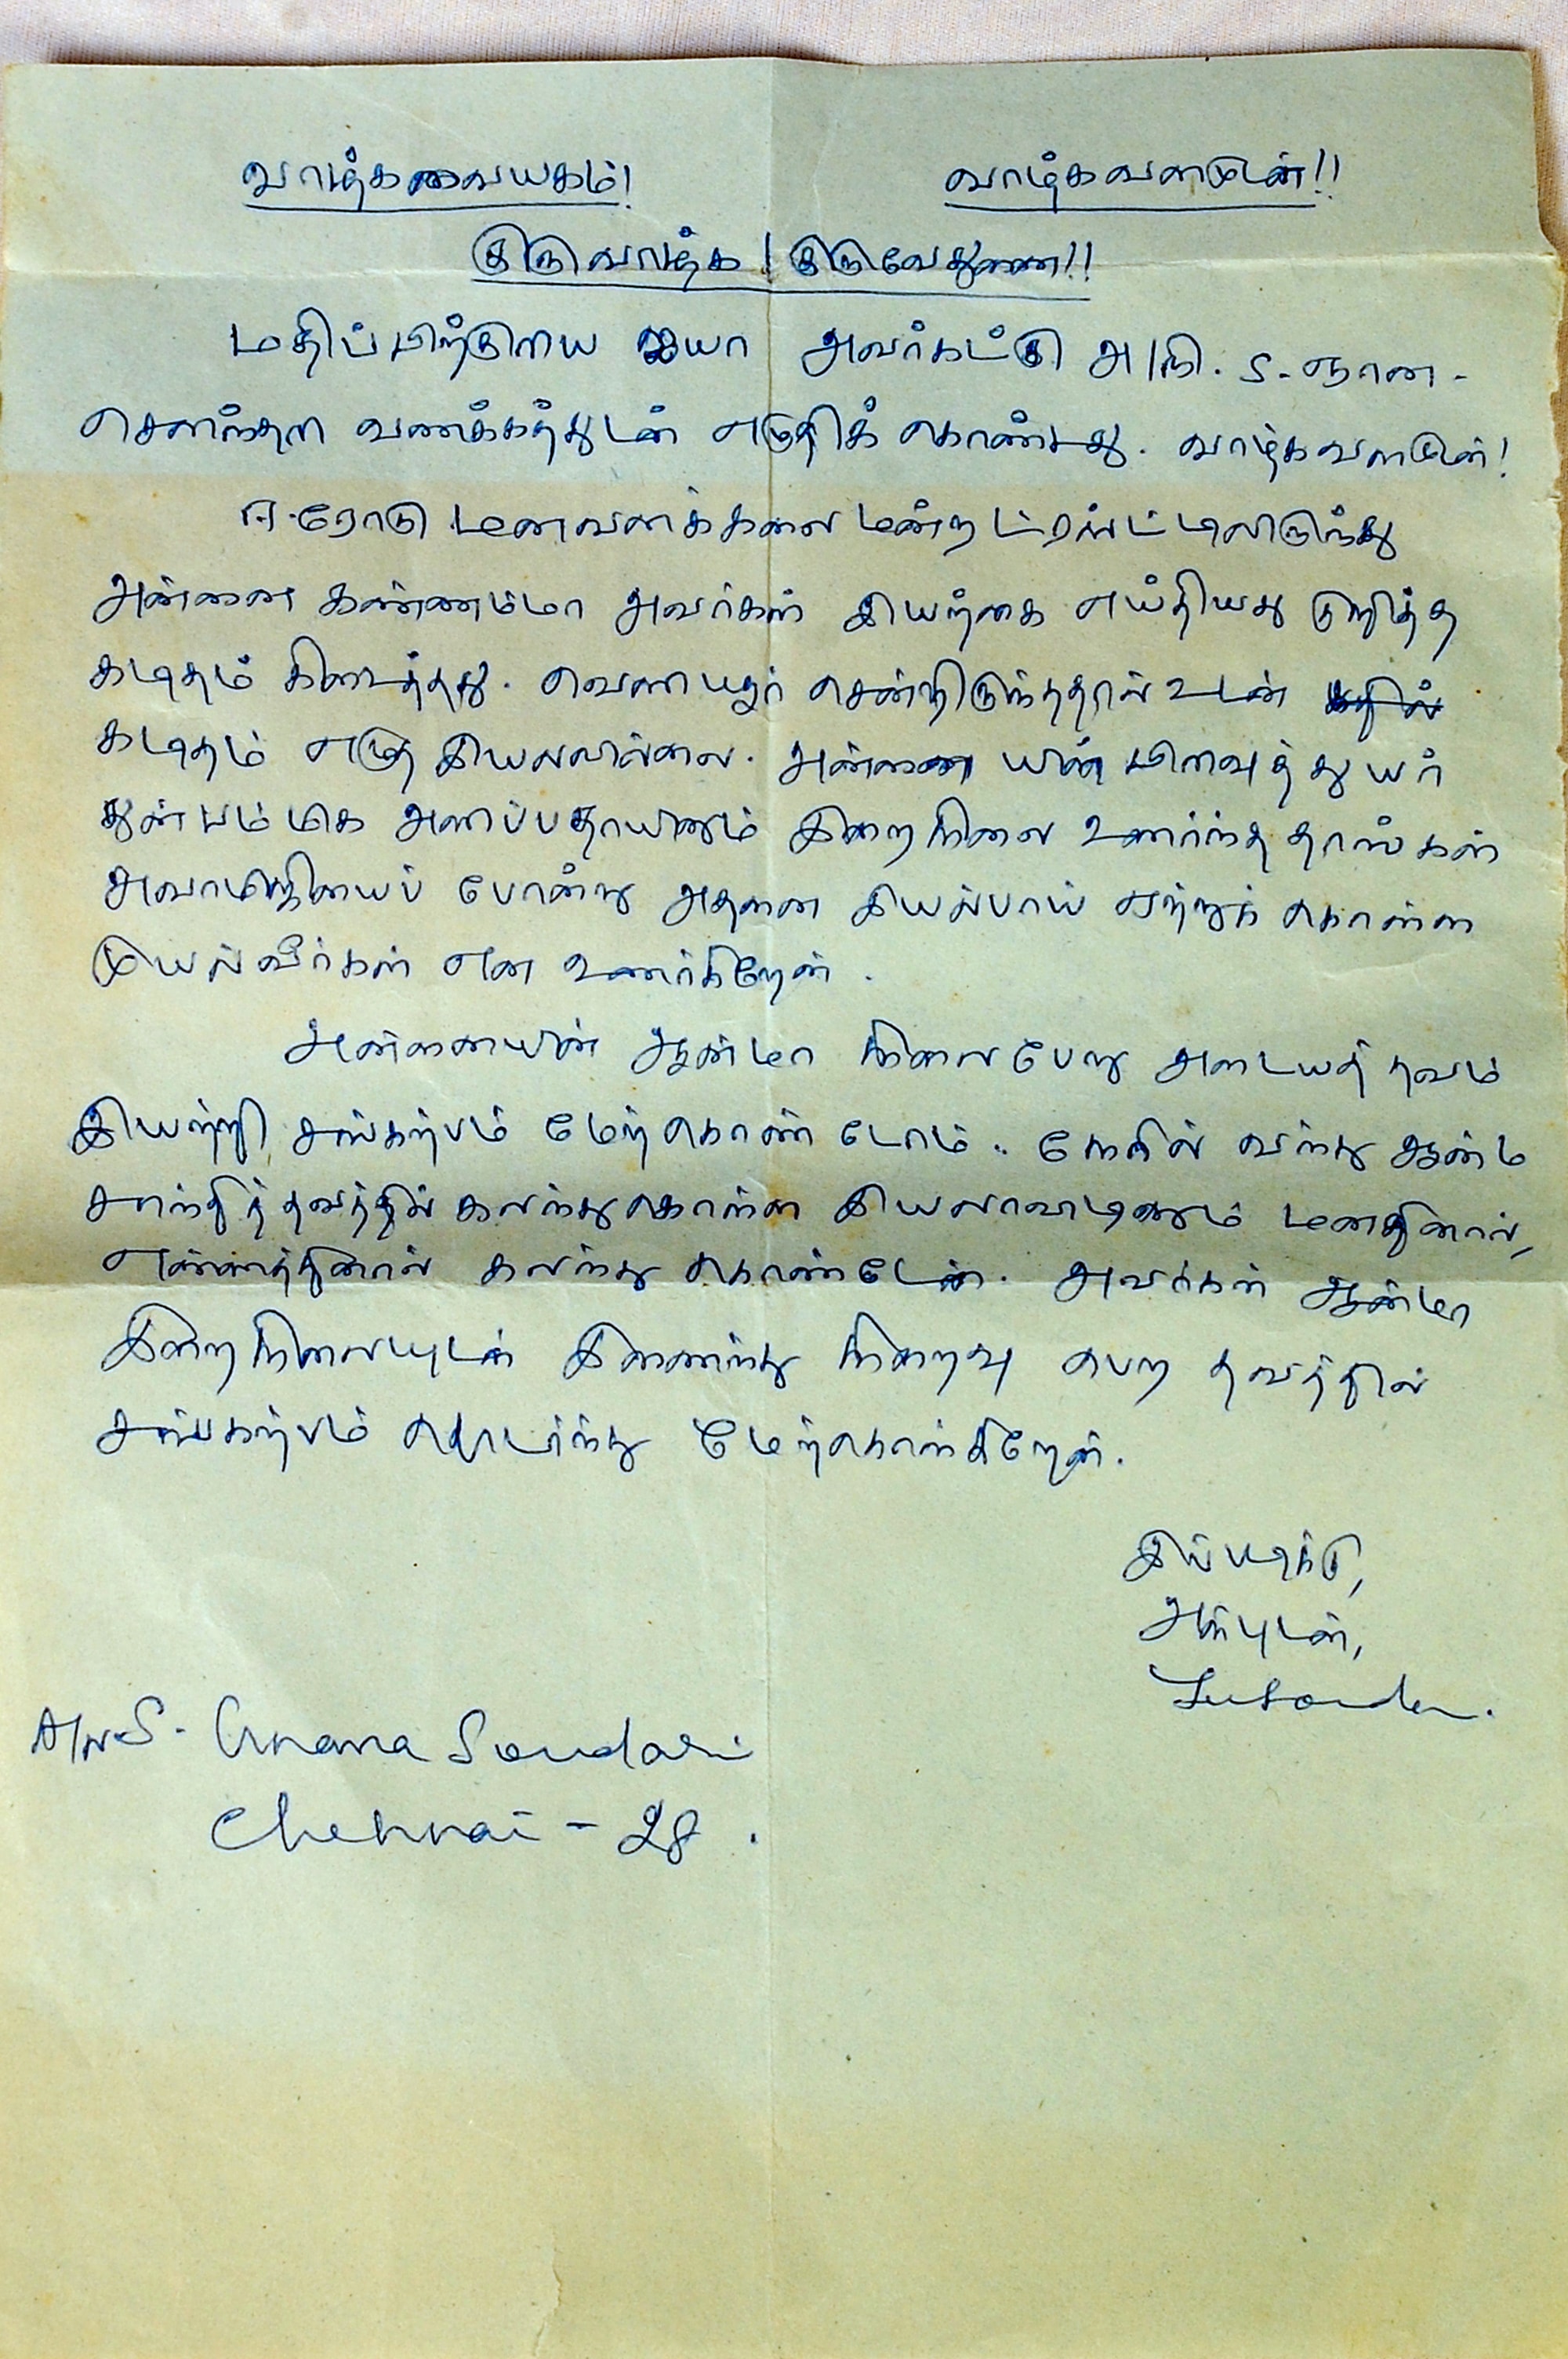 வாழ்க வையகம்! வாழ்க வளமுடன்!!
குரு வாழ்க! குருவே துணை!!
மதிப்பிற்குரிய ஐயா அவர்கட்கு அ/நி. S. ஞான-
செளந்தரி வணக்கத்துடன் எழுதிக் கொண்டது. வாழ்க வளமுடன்!
ஈ.ரோடு மனவளக்கலை மன்ற ட்ரஸ்ட்டிலிருந்து
அன்னை கண்ணம்மா அவர்கள் இயற்கை எய்தியது குறித்த
கடிதம் கிடைத்தது. வெளியூர் சென்றிருந்ததால் உடன் பதில்
கடிதம் எழுத இயலவில்லை. அன்னையின் பிரிவுத் துயர்
துன்பம் மிக அளிப்பதாயினும் இறைநிலை உணர்ந்த தாங்கள்
சுவாமிஜியைப் போன்று அதனை இயல்பாய் ஏற்றுக் கொள்ள
முயல்வீர்கள் என உணர்கிறேன்.
அன்னையின் ஆன்மா நிலைபேறு அடையத் தவம்
இயற்றி சங்கற்பம் மேற்கொண்டோம். நேரில் வந்து ஆன்ம
சாந்தித் தவத்தில் கலந்து கொள்ள இயலாவிடினும் மனதினால்,
எண்ணத்தினால் கலந்து கொண்டேன். அவர்கள் ஆன்மா
இறைநிலையுடன் இணைந்து நிறைவு பெற தவத்தில்
சங்கற்பம் தொடர்ந்து மேற்கொள்கிறேன்.
இப்படிக்கு,
அன்புடன்,
A/N S. Gnana Soundari
Chennai - 28.